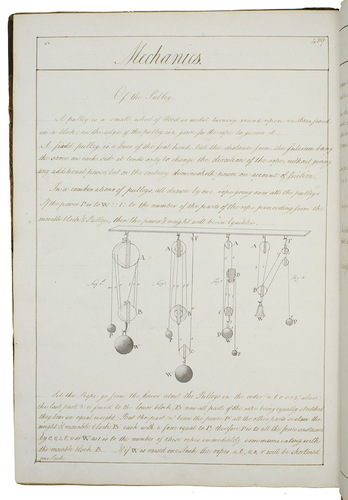 Mechanics.
Of the Pulley.
A pulley is a small wheel of Wood or metal turning round upon an Axis, fixed
in a block; on the edge of the pulley is a groove for the rope to go over it
A fixed pulley is a lever of the first kind, but the distance from the fulcrum being
the same on each side it tends only to change the direction of the rope, without giving
any additional power, but on the contrary diminisheth the power on account of friction
In a combination of pulleys all drawn by one rope going over all the pulleys
If the power P is to W :: 1: to the number of the parts of the rope proceeding from the
movable block & Pulleys, then the power & weight will be in Equilibrio.
A
B
P
W
A
B
P
W
A
B
C
P
W
F
B
W
P
Let the Rope go from the power about the Pulleys in the order
the last part is fixed to the lower block B now all parts of the rope being equally stretched
they bear an equal weight; But the part bears the power P all the other parts sustain the
weight & movable block B each with a force equal to P; therefore P is to all the forces sustained
by or W as 1 is to the number of these ropes immediately communicating with
the movable block B. If W is raised one Inch the ropes will be shortened
one Inch